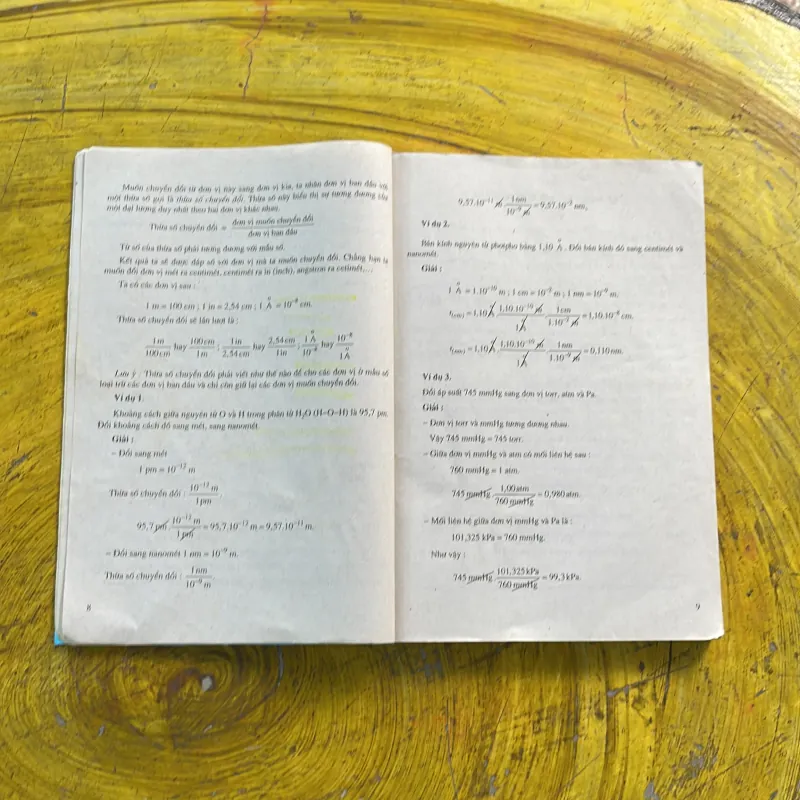 Muốn chuyển đổi từ đơn vị này sang đơn vị kia, ta nhân đơn vị ban đầu với
một thừa số gọi là thừa số chuyển đổi. Thừa số này biểu thị sự tương đương của
một đại lượng duy nhất theo hai đơn vị khác nhau.
Thừa số chuyển đổi = đơn vị muốn chuyển đổi / đơn vị ban đầu
Tử số của thừa số phải tương đương với mẫu số.
Kết quả ta sẽ được đáp số với đơn vị mà ta muốn chuyển đổi. Chẳng hạn ta
muốn đổi đơn vị mét ra centimét, centimét ra in (inch), angstrom ra cetimét,...
Ta có các đơn vị sau :
1 m = 100 cm ; 1 in = 2,54 cm ; 1 Å = 10⁻⁸ cm.
Thừa số chuyển đổi sẽ lần lượt là :
1m / 100cm hay 100cm / 1m ; 1in / 2,54cm hay 2,54cm / 1in ; 1Å / 10⁻⁸ hay 10⁻⁸ / 1Å
Lưu ý : Thừa số chuyển đổi phải viết như thế nào để cho các đơn vị ở mẫu số
loại trừ các đơn vị ban đầu và chỉ còn giữ lại các đơn vị muốn chuyển đổi.
Ví dụ 1.
Khoảng cách giữa nguyên tử O và H trong phân tử H₂O (H–O–H) là 95,7 pm.
Đổi khoảng cách đó sang mét, sang nanomét.
Giải :
– Đổi sang mét
1 pm = 10⁻¹² m
Thừa số chuyển đổi : 10⁻¹² m / 1pm .
95,7 pm. 10⁻¹² m / 1 pm = 95,7.10⁻¹² m = 9,57.10⁻¹¹ m.
– Đổi sang nanomét 1 nm = 10⁻⁹ m.
Thừa số chuyển đổi : 1nm / 10⁻⁹ m .
8
9,57.10⁻¹¹ m. 1nm / 10⁻⁹ m = 9,57.10⁻² nm.
Ví dụ 2.
Bán kính nguyên tử photpho bằng 1,10 Å . Đổi bán kính đó sang centimét và
nanomét.
Giải :
1 Å = 1.10⁻¹⁰ m ; 1 cm = 10⁻² m ; 1 nm = 10⁻⁹ m.
r(cm) = 1,10Å. 1,10.10⁻¹⁰ m / 1Å . 1cm / 1.10⁻² m = 1,10.10⁻⁸ cm.
r(nm) = 1,10Å. 1,10.10⁻¹⁰ m / 1Å . 1nm / 1.10⁻⁹ m = 0,110nm.
Ví dụ 3.
Đổi áp suất 745 mmHg sang đơn vị torr, atm và Pa.
Giải :
– Đơn vị torr và mmHg tương đương nhau.
Vậy 745 mmHg = 745 torr.
– Giữa đơn vị mmHg và atm có mối liên hệ sau :
760 mmHg = 1 atm.
745 mmHg. 1,00atm / 760 mmHg = 0,980atm.
– Mối liên hệ giữa đơn vị mmHg và Pa là :
101,325 kPa = 760 mmHg.
Như vậy :
745 mmHg. 101,325kPa / 760 mmHg = 99,3kPa.
9